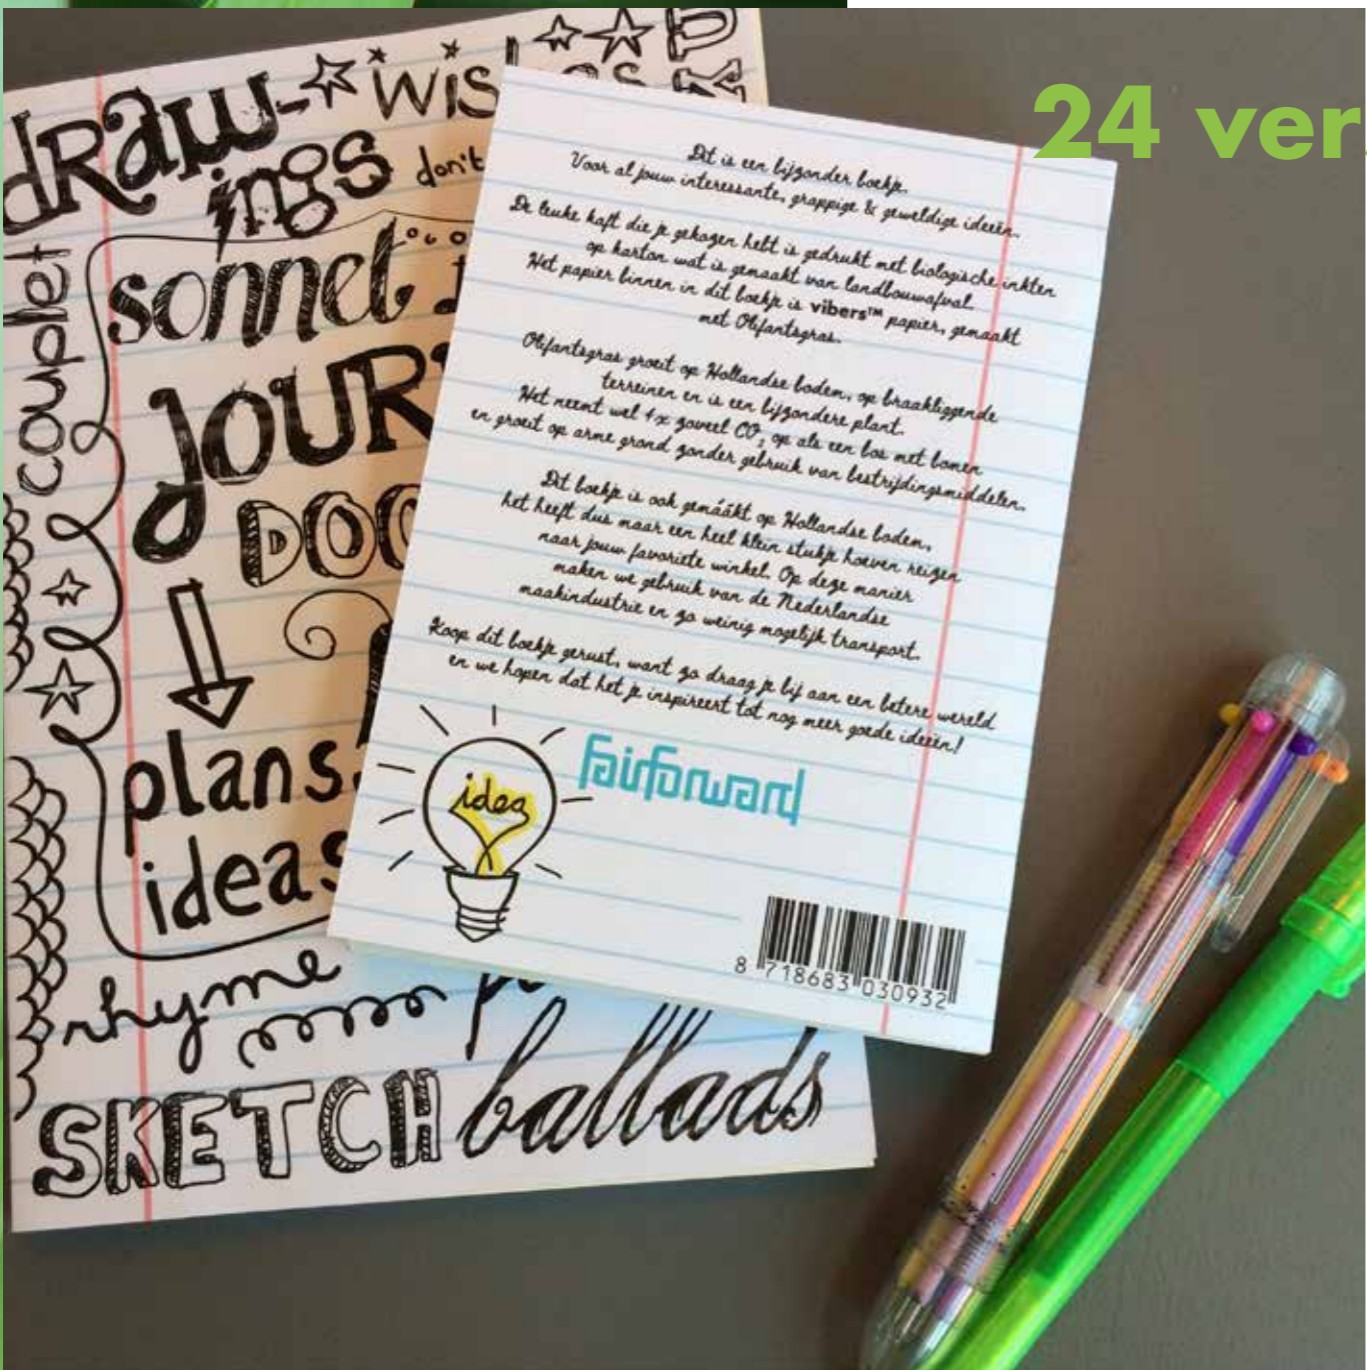 24 ver
draw-
ings
wis
don't
couplet
sonnet
JOUR
DOO
plans
ideas
rhyme
SKETCH ballads
Dit is een bijzonder boekje.
Voor al jouw interessante, grappige & geweldige ideeën.
De leuke kaft die je gekozen hebt is gedrukt met biologische inkten
op karton wat is gemaakt van landbouwafval.
Het papier binnen in dit boekje is vibers™ papier, gemaakt
met Olifantsgras.
Olifantsgras groeit op Hollandse bodem, op braakliggende
terreinen en is een bijzondere plant.
Het neemt wel 4x zoveel CO₂ op als een bos met bomen
en groeit op arme grond zonder gebruik van bestrijdingsmiddelen.
Dit boekje is ook gemáákt op Hollandse bodem,
het heeft dus maar een heel klein stukje hoeven reizen
naar jouw favoriete winkel. Op deze manier
maken we gebruik van de Nederlandse
maakindustrie en zo weinig mogelijk transport.
Koop dit boekje gerust, want zo draag je bij aan een betere wereld
en we hopen dat het je inspireert tot nog meer goede ideeën!
idea
fairforward
8 718683 030932